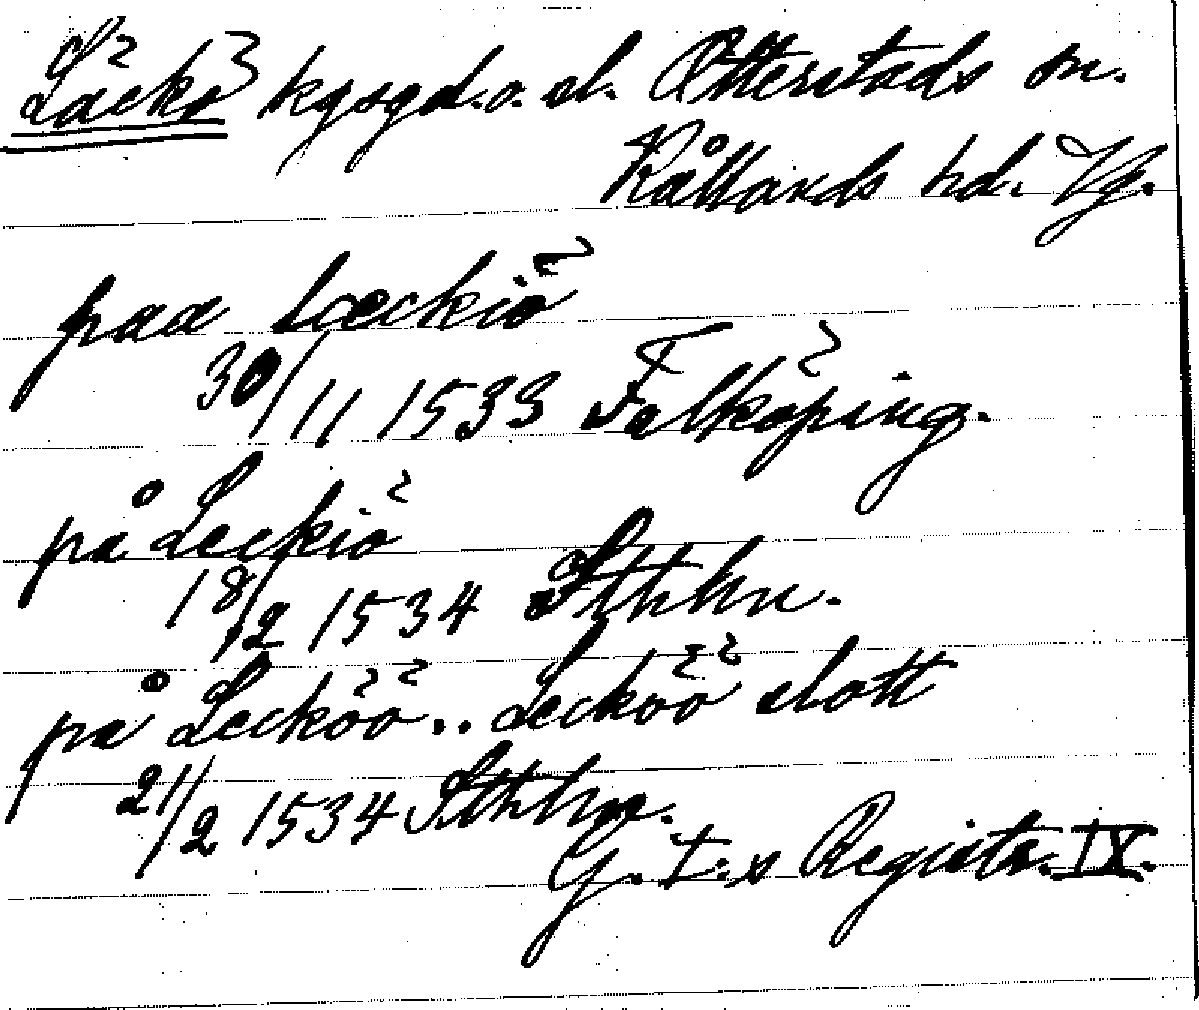 Läckö kgsgd. o. sl. Otterstads sn.
Kållands hd. Vg.
paa Læckiö
30/11 1533 Falköping.
på Leckiö
18/2 1534 Sthlm.
på Lecköö .. Lecköö slott
21/2 1534 Sthlm.
G. I:s Registr. IX.